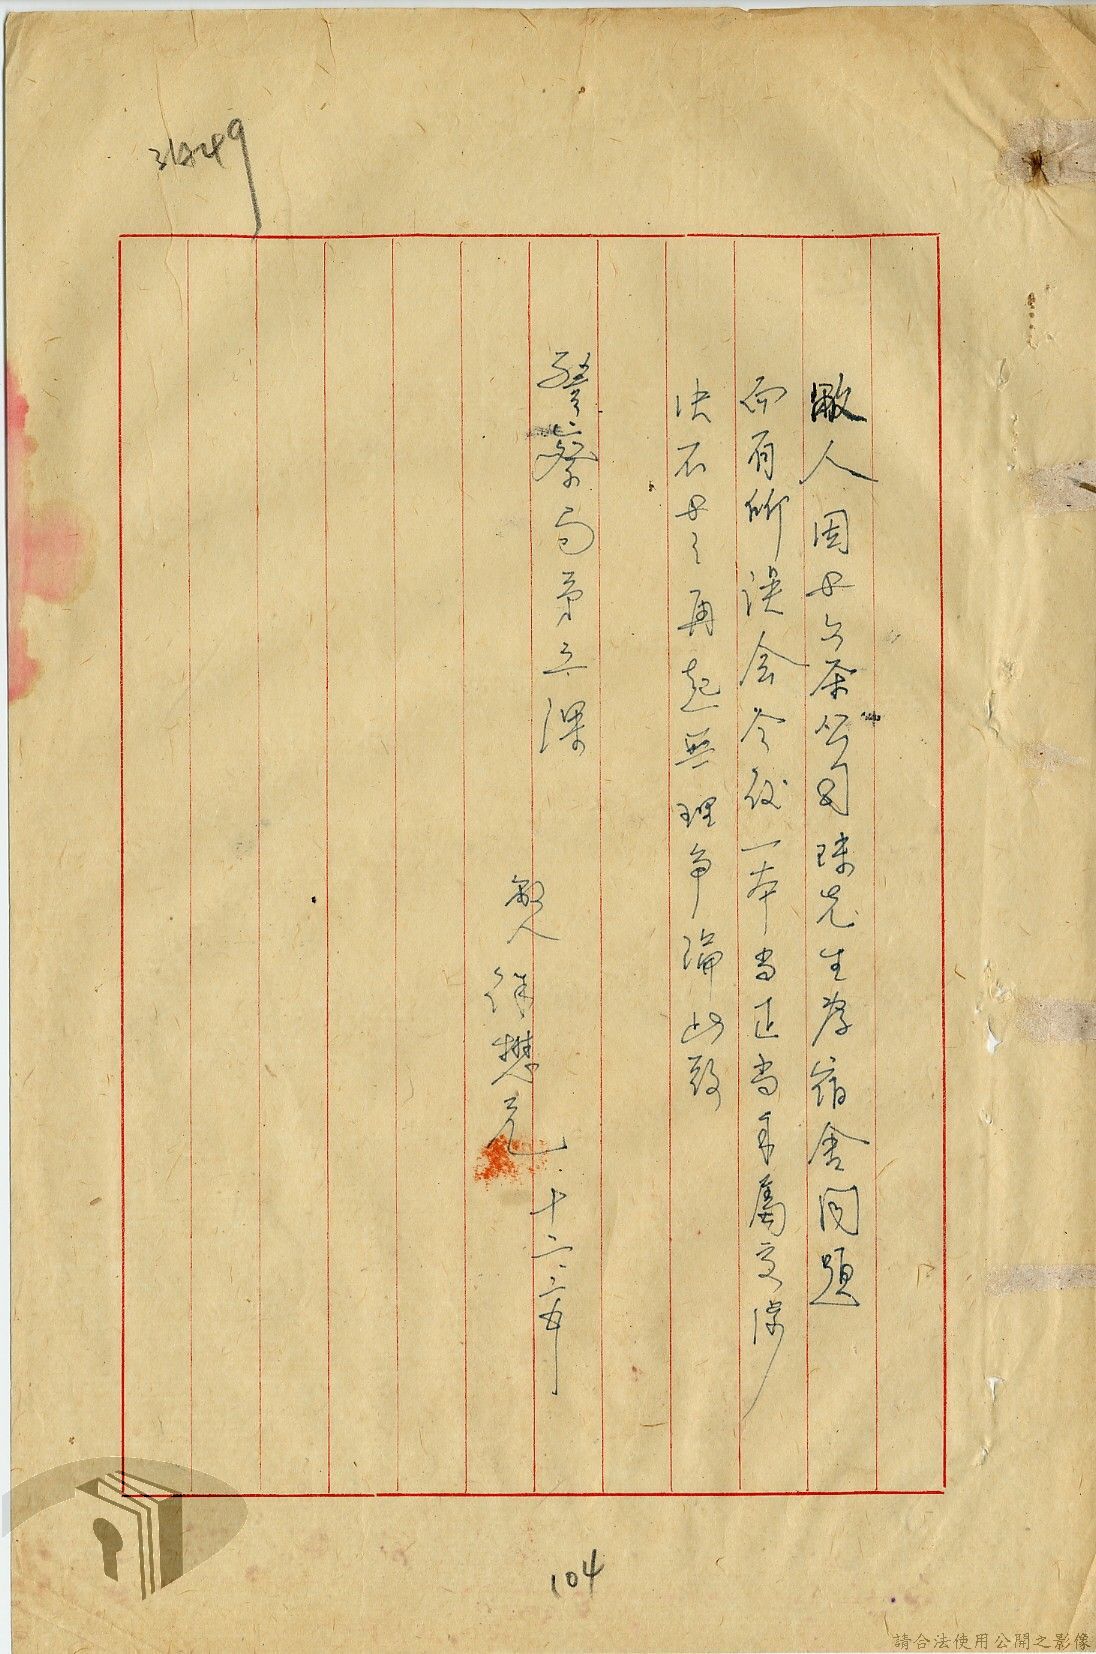 31249
敝人因與台茶公司 先生為宿舍問題
而有所誤会今後一本当正当手属交涉
决不與之再起無理争論此致
警察局第三課
敝人 徐懋元 十二.二五
104
請合法使用公開之影像